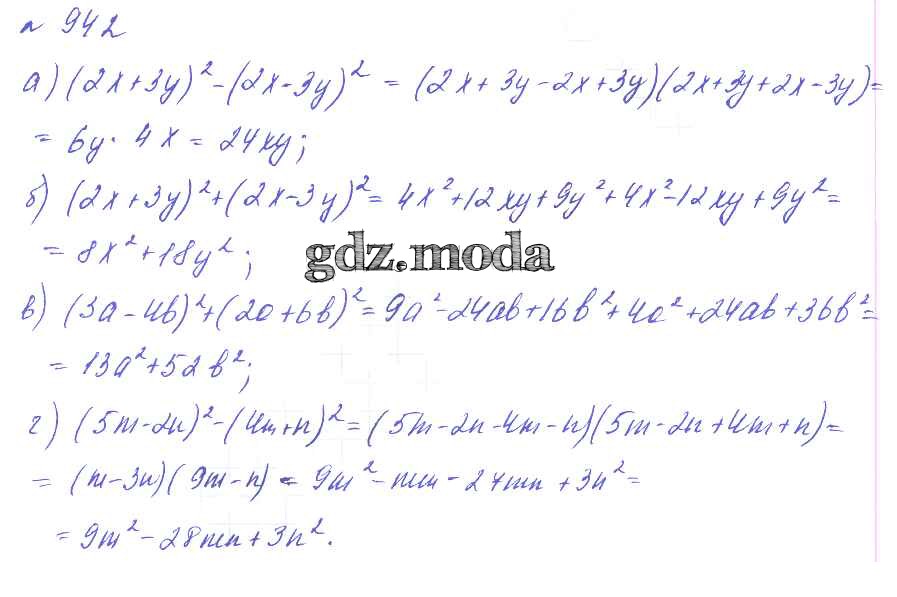 № 942
а) (2x+3y)² - (2x-3y)² = (2x+3y-2x+3y)(2x+3y+2x-3y) =
= 6y · 4x = 24xy;
б) (2x+3y)² + (2x-3y)² = 4x²+12xy+9y²+4x²-12xy+9y² =
= 8x²+18y²;
gdz.moda
в) (3a-4b)² + (2a+6b)² = 9a²-24ab+16b²+4a²+24ab+36b² =
= 13a²+52b²;
г) (5m-2n)² - (4m+n)² = (5m-2n-4m-n)(5m-2n+4m+n) =
= (m-3n)(9m-n) = 9m²-mn-27mn+3n² =
= 9m²-28mn+3n².